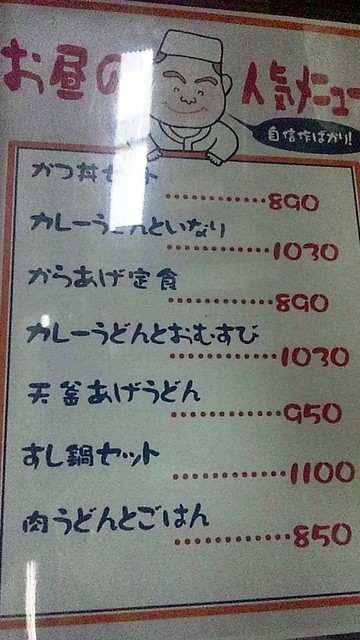 お昼の人気メニュー
自信作ばかり!
かつ丼セット
890
カレーうどんといなり
1030
からあげ定食
890
カレーうどんとおむすび
1030
天釜あげうどん
950
すし鍋セット
1100
肉うどんとごはん
850